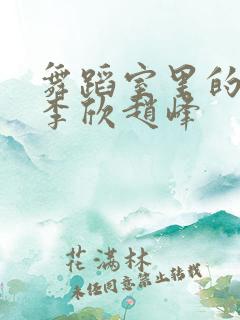 舞蹈室里的
李欣赵峰
花满林
未经同意禁止转载